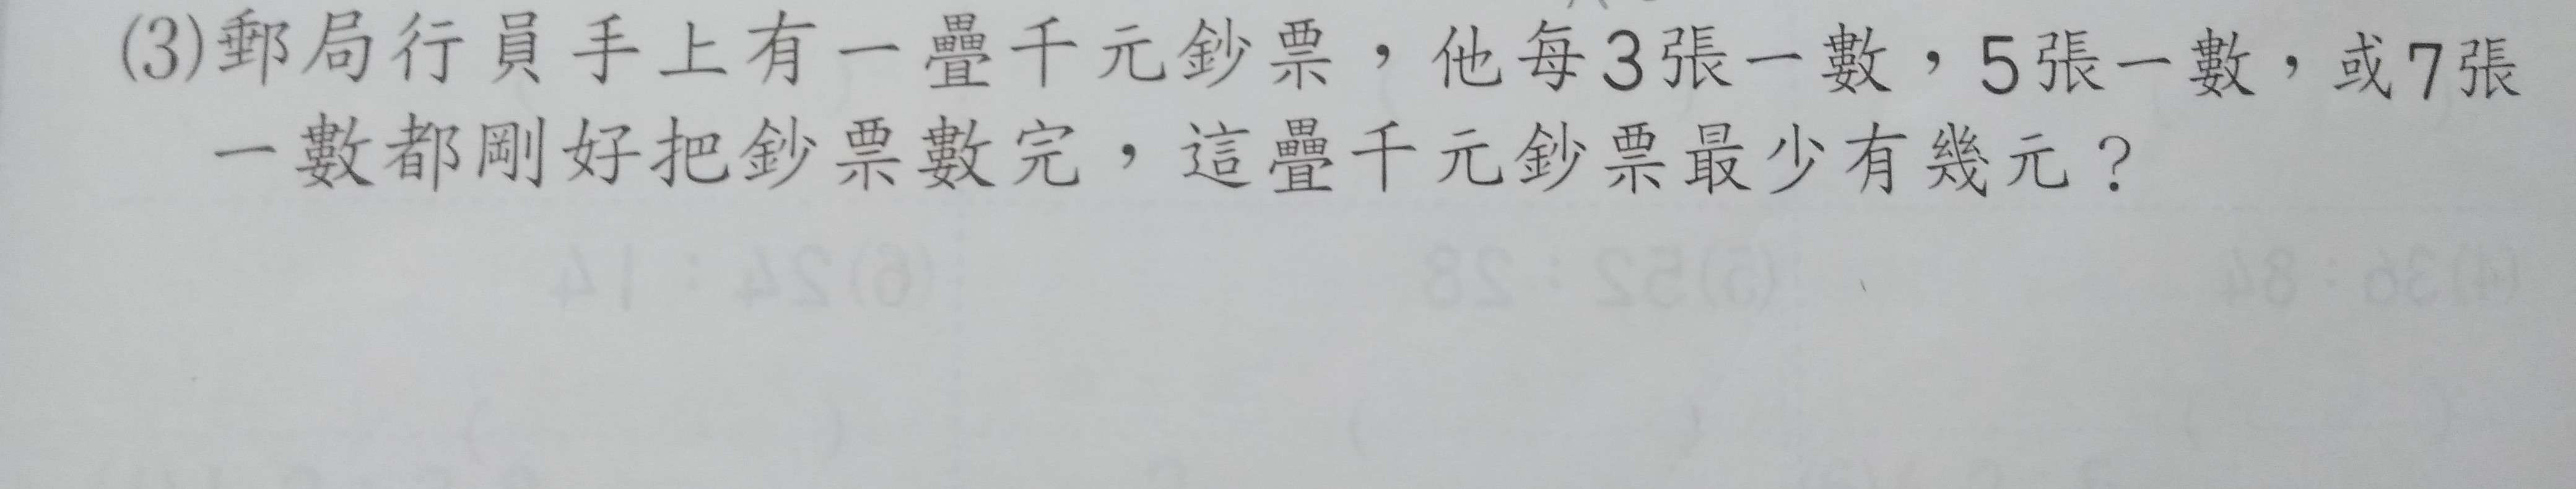 (3)郵局行員手上有一疊千元鈔票，他每3張一數，5張一數，或7張
一數都剛好把鈔票數完，這疊千元鈔票最少有幾元？
(4)36：84 (5)52：28 (6)24：14